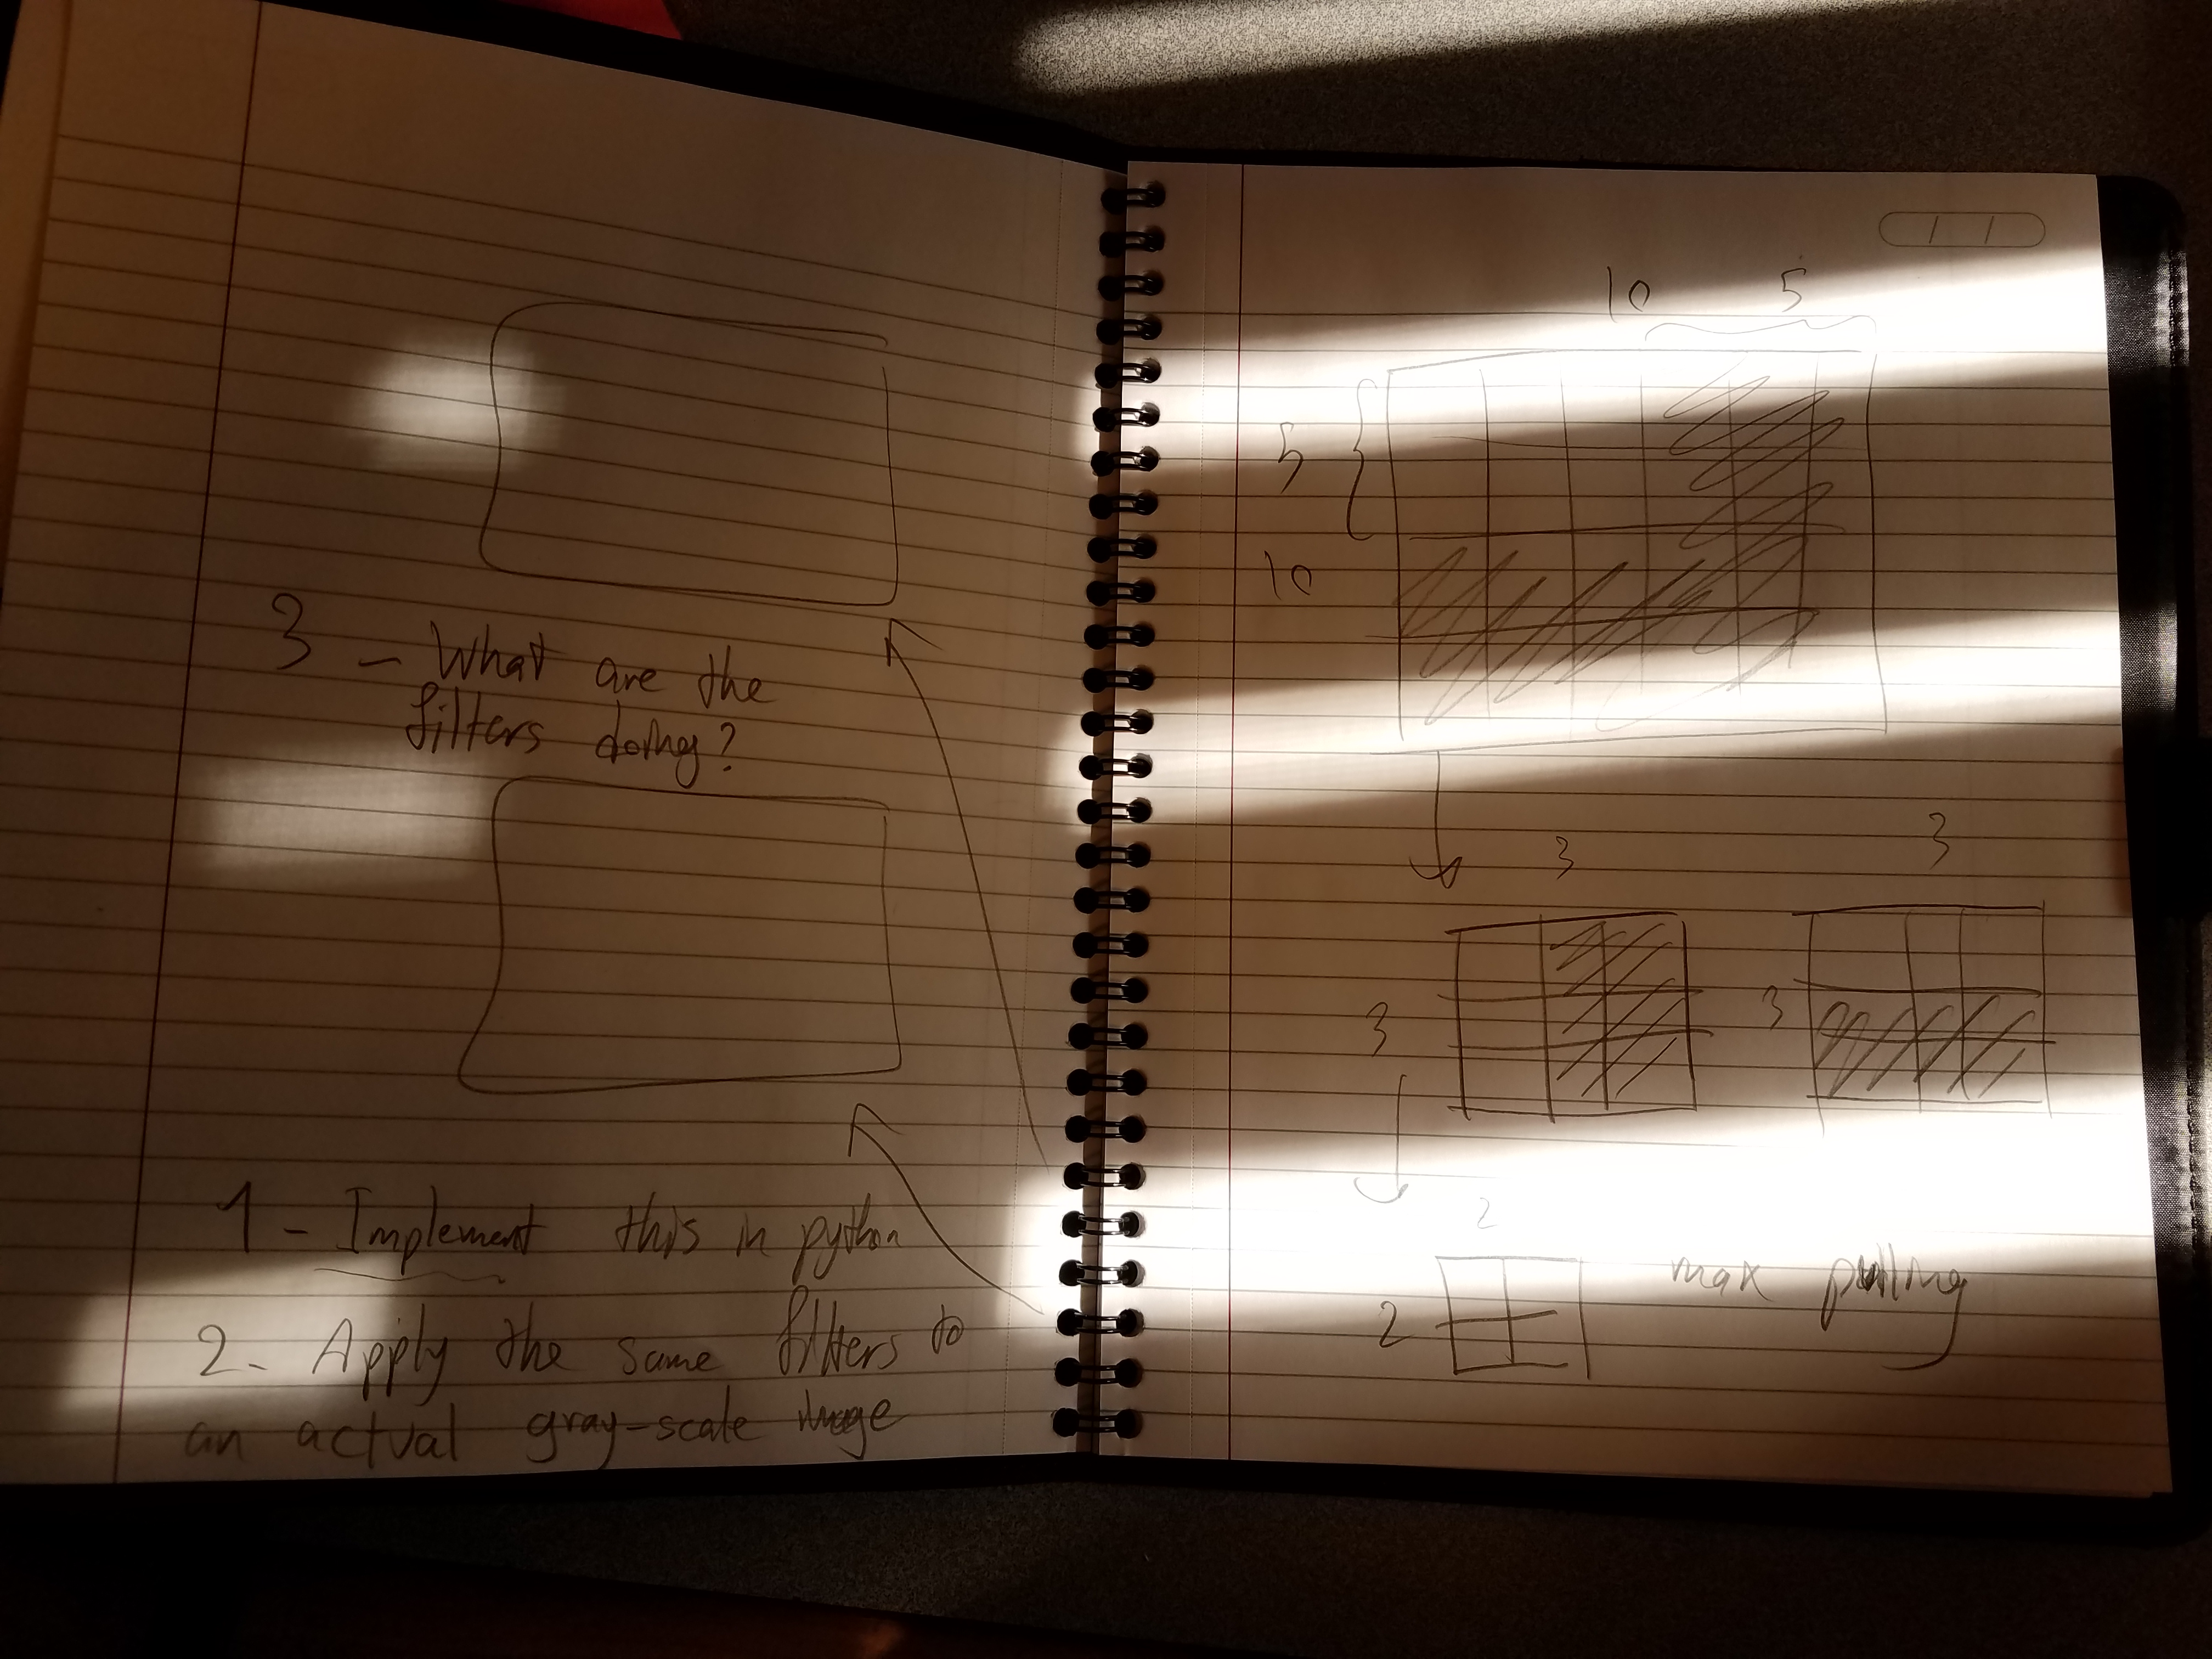 3 - What are the
filters doing?
1 - Implement this in python
2 - Apply the same filters to
an actual gray-scale image
10
5
5
10
3
3
3
3
2
2
max pulling